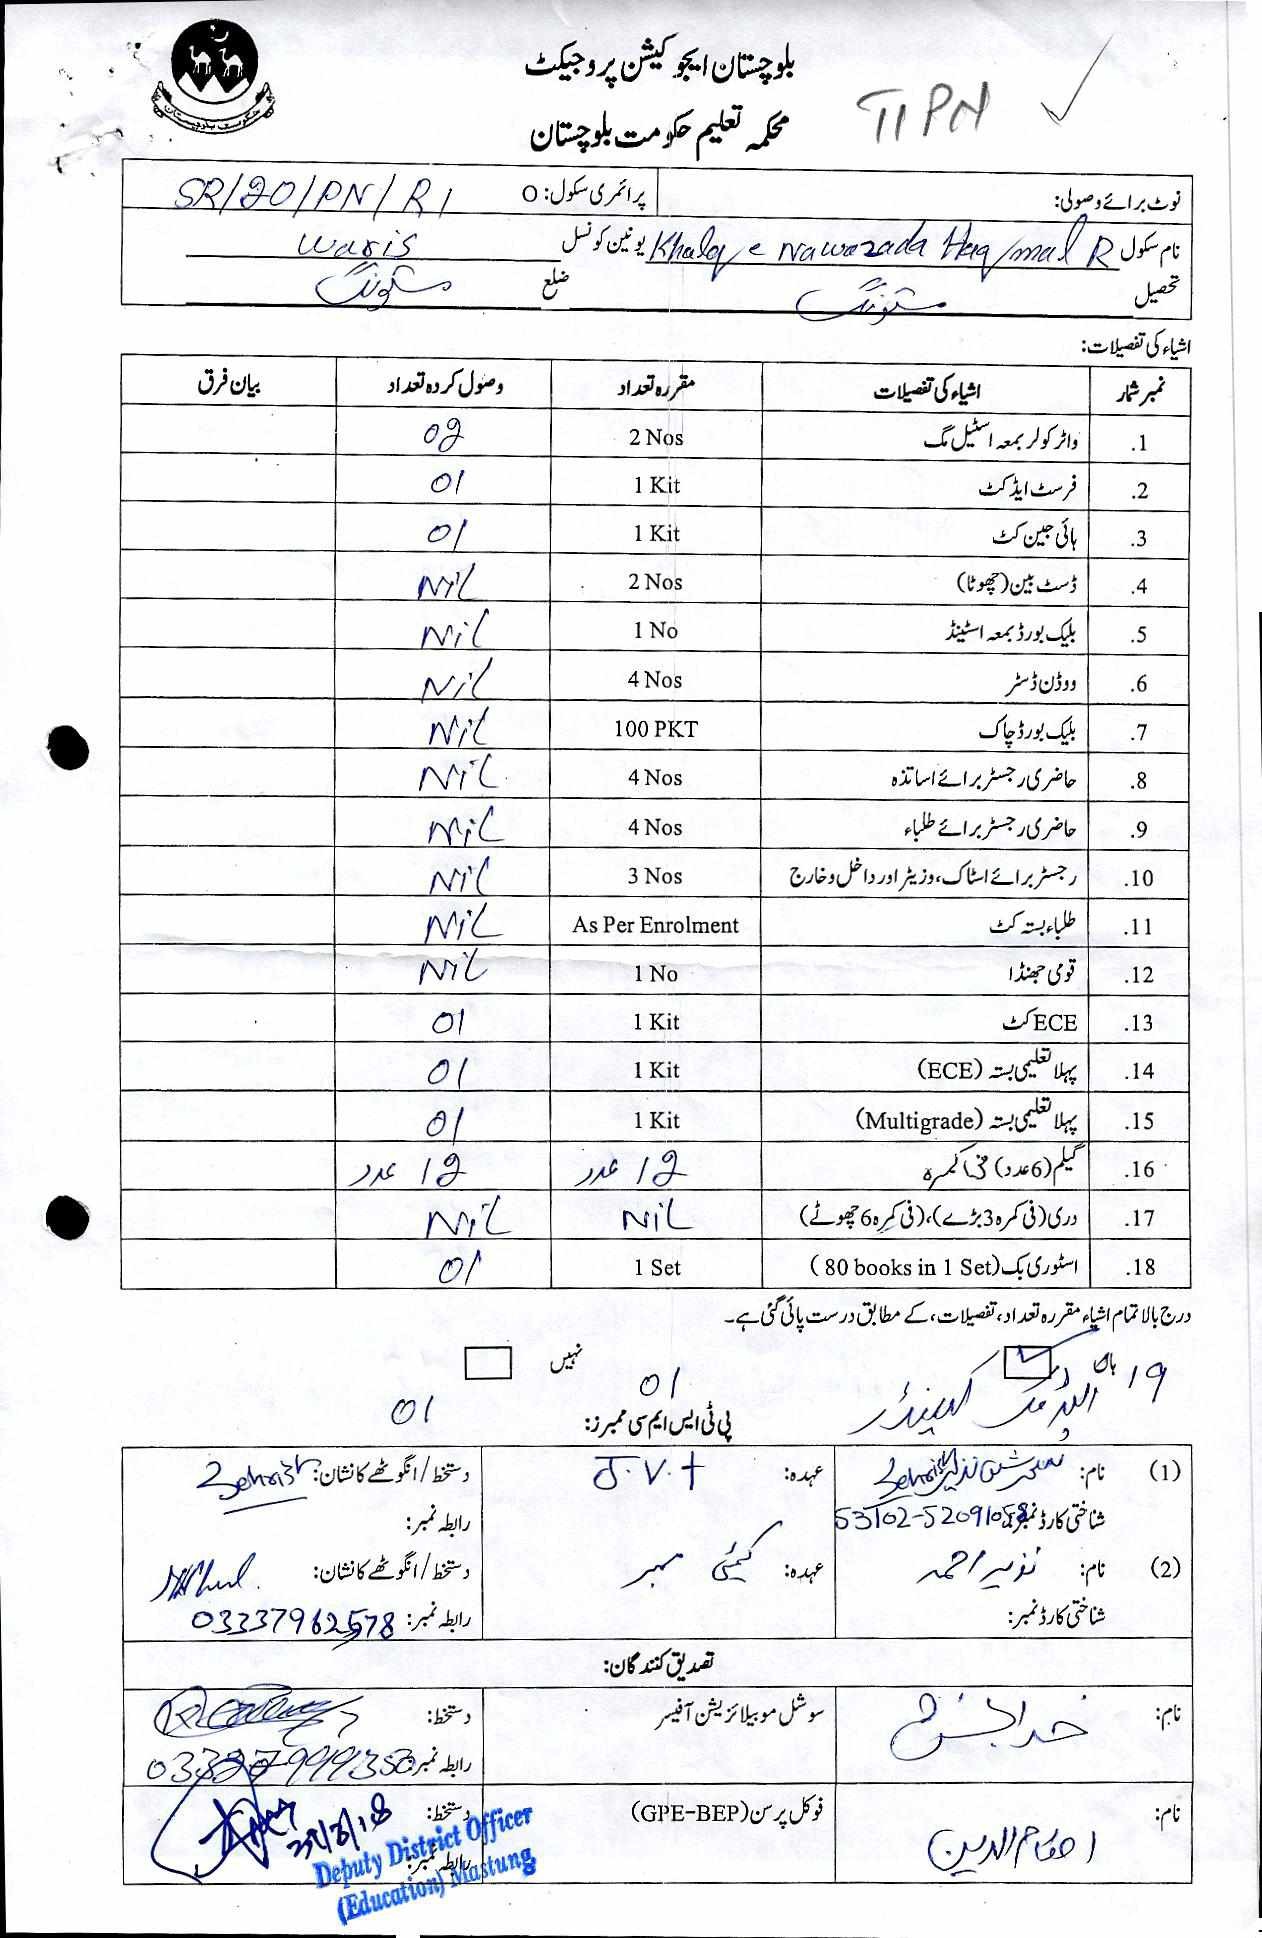 بلوچستان ایجوکیشن پروجیکٹ
محکمہ تعلیم حکومت بلوچستان
TIPN
حکومت بلوچستان
نوٹ برائے وصولی:
پرائمری سکول: O SR/20/PN/R1
نام سکول Khaleq e Nawazada Haq/mal R یونین کونسل Waris
تحصیل مستونگ ضلع مستونگ
اشیاء کی تفصیلات:
نمبر شمار اشیاء کی تفصیلات مقررہ تعداد وصول کردہ تعداد بیان فرق
1. واٹر کولر بمعہ اسٹیل مگ 2 Nos 02
2. فرسٹ ایڈ کٹ 1 Kit 01
3. ہائی جین کٹ 1 Kit 01
4. ڈسٹ بین (چھوٹا) 2 Nos Nil
5. بلیک بورڈ بمعہ اسٹینڈ 1 No Nil
6. ووڈن ڈسٹر 4 Nos Nil
7. بلیک بورڈ چاک 100 PKT Nil
8. حاضری رجسٹر برائے اساتذہ 4 Nos Nil
9. حاضری رجسٹر برائے طلباء 4 Nos Nil
10. رجسٹر برائے اسٹاک، وزیٹر اور داخل و خارج 3 Nos Nil
11. طلباء بستہ کٹ As Per Enrolment Nil
12. قومی جھنڈا 1 No Nil
13. ECE کٹ 1 Kit 01
14. پہلا تعلیمی بستہ (ECE) 1 Kit 01
15. پہلا تعلیمی بستہ (Multigrade) 1 Kit 01
16. گیلم (6 عدد) فی کمرہ 12 عدد 12 عدد
17. دری (فی کمرہ 3 بڑے)، (فی کمرہ 6 چھوٹے) Nil Nil
18. اسٹوری بک (80 books in 1 Set) 1 Set 01
درج بالا تمام اشیاء مقررہ تعداد، تفصیلات، کے مطابق درست پائی گئی ہے۔
ہاں نہیں
19 01 01
پی ٹی ایس ایم سی ممبرز:
(1) نام: عہدہ: J.V.t دستخط/انگوٹھے کا نشان: Zehrish
شناختی کارڈ نمبر: رابطہ نمبر:
(2) نام: نذیر احمد عہدہ: کمیٹی ممبر دستخط/انگوٹھے کا نشان:
شناختی کارڈ نمبر: رابطہ نمبر: 03337962578
تصدیق کنندگان:
نام: خدا بخش سوشل موبیلائزیشن آفیسر دستخط:
رابطہ نمبر: 03327999353
نام: فوکل پرسن (GPE-BEP) دستخط:
رابطہ نمبر:
Deputy District Officer
(Education) Mastung